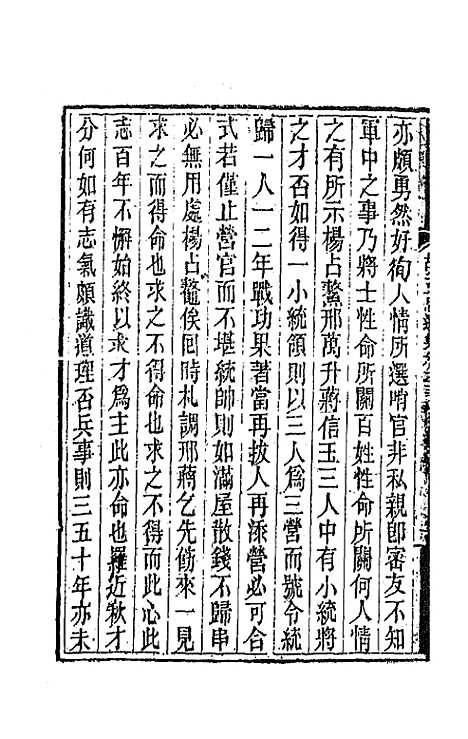 亦頗勇然好徇人情所選哨官非私親卽密友不知
軍中之事乃將士性命所關百姓性命所關何人情
之有所示楊占鰲邢萬升蔣信玉三人中有小統將
之才否如得一小統領則以三人爲三營而號令統
歸一人一二年戰功果著當再拔人再添營必可合
式若僅止營官而不堪統帥則如滿屋散錢不歸串
必無用處楊占鼇俟囘時札調邢蔣乞先飭來一見
求之而得命也求之不得命也求之不得而此心此
志百年不懈始終以求才爲主此亦命也羅近秋才
分何如有志氣頗識道理否兵事則三五十年亦未